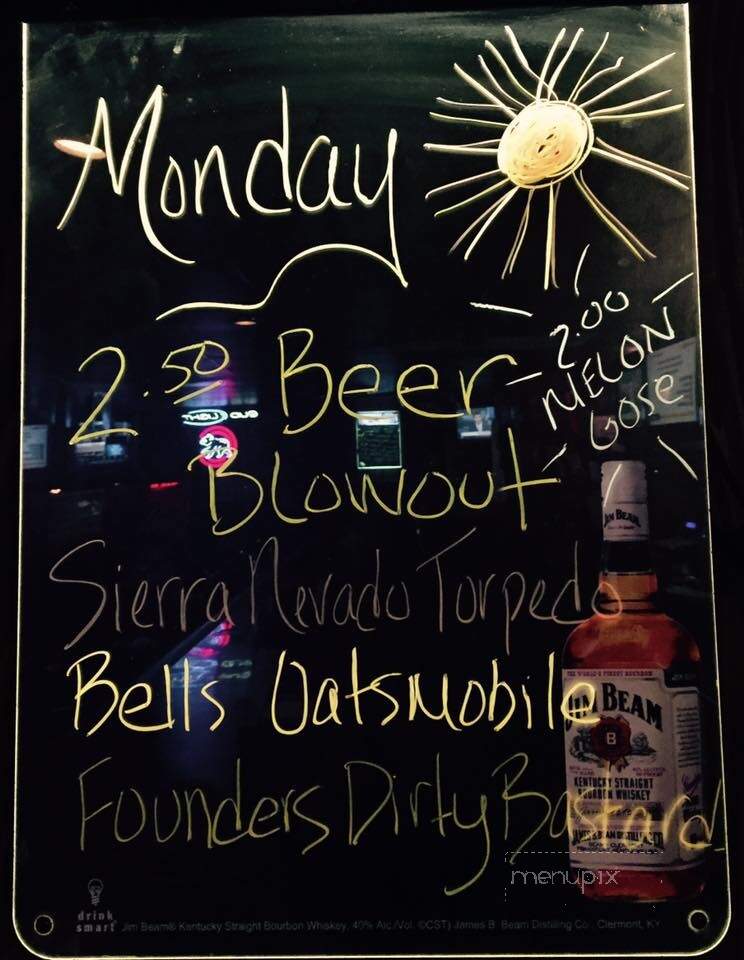 Monday
2.50 Beer
Blowout
2.00
MELON
GOSE
Sierra Nevado Torpedo
Bells Oatsmobile
Founders Dirty Bastard
JIM BEAM
THE WORLD'S FINEST BOURBON
JIM BEAM
B
KENTUCKY STRAIGHT
BOURBON WHISKEY
menupix
drink
smart
Jim Beam® Kentucky Straight Bourbon Whiskey, 40% Alc./Vol. ©CST) James B. Beam Distilling Co., Clermont, KY